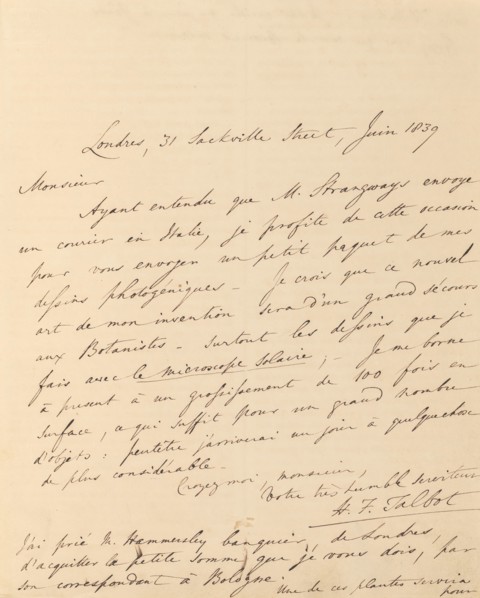 Londres, 31 Sackville Street, Juin 1839
Monsieur
Ayant entendu que M. Strangways envoye
un courier en Italie, je profite de cette occasion
pour vous envoyer un petit paquet de mes
dessins photogéniques – Je crois que ce nouvel
art de mon invention sera d'un grand sécours
aux Botanistes – surtout les dessins que je
fais avec le microscope solaire ; – Je me borne
à present à un grossissement de 100 fois en
surface, ce qui suffit pour un grand nombre
d'objets : peutétre j'arriverai un jour à quelquechose
de plus considérable –
Croyez moi, monsieur,
Votre très humble serviteur
H. F. Talbot
J'ai prié M. Hammersley banquier, de Londres,
d'acquitter la petite somme que je vous dois, par
son correspondant à Bologne.
Une de ces plantes servira
pour